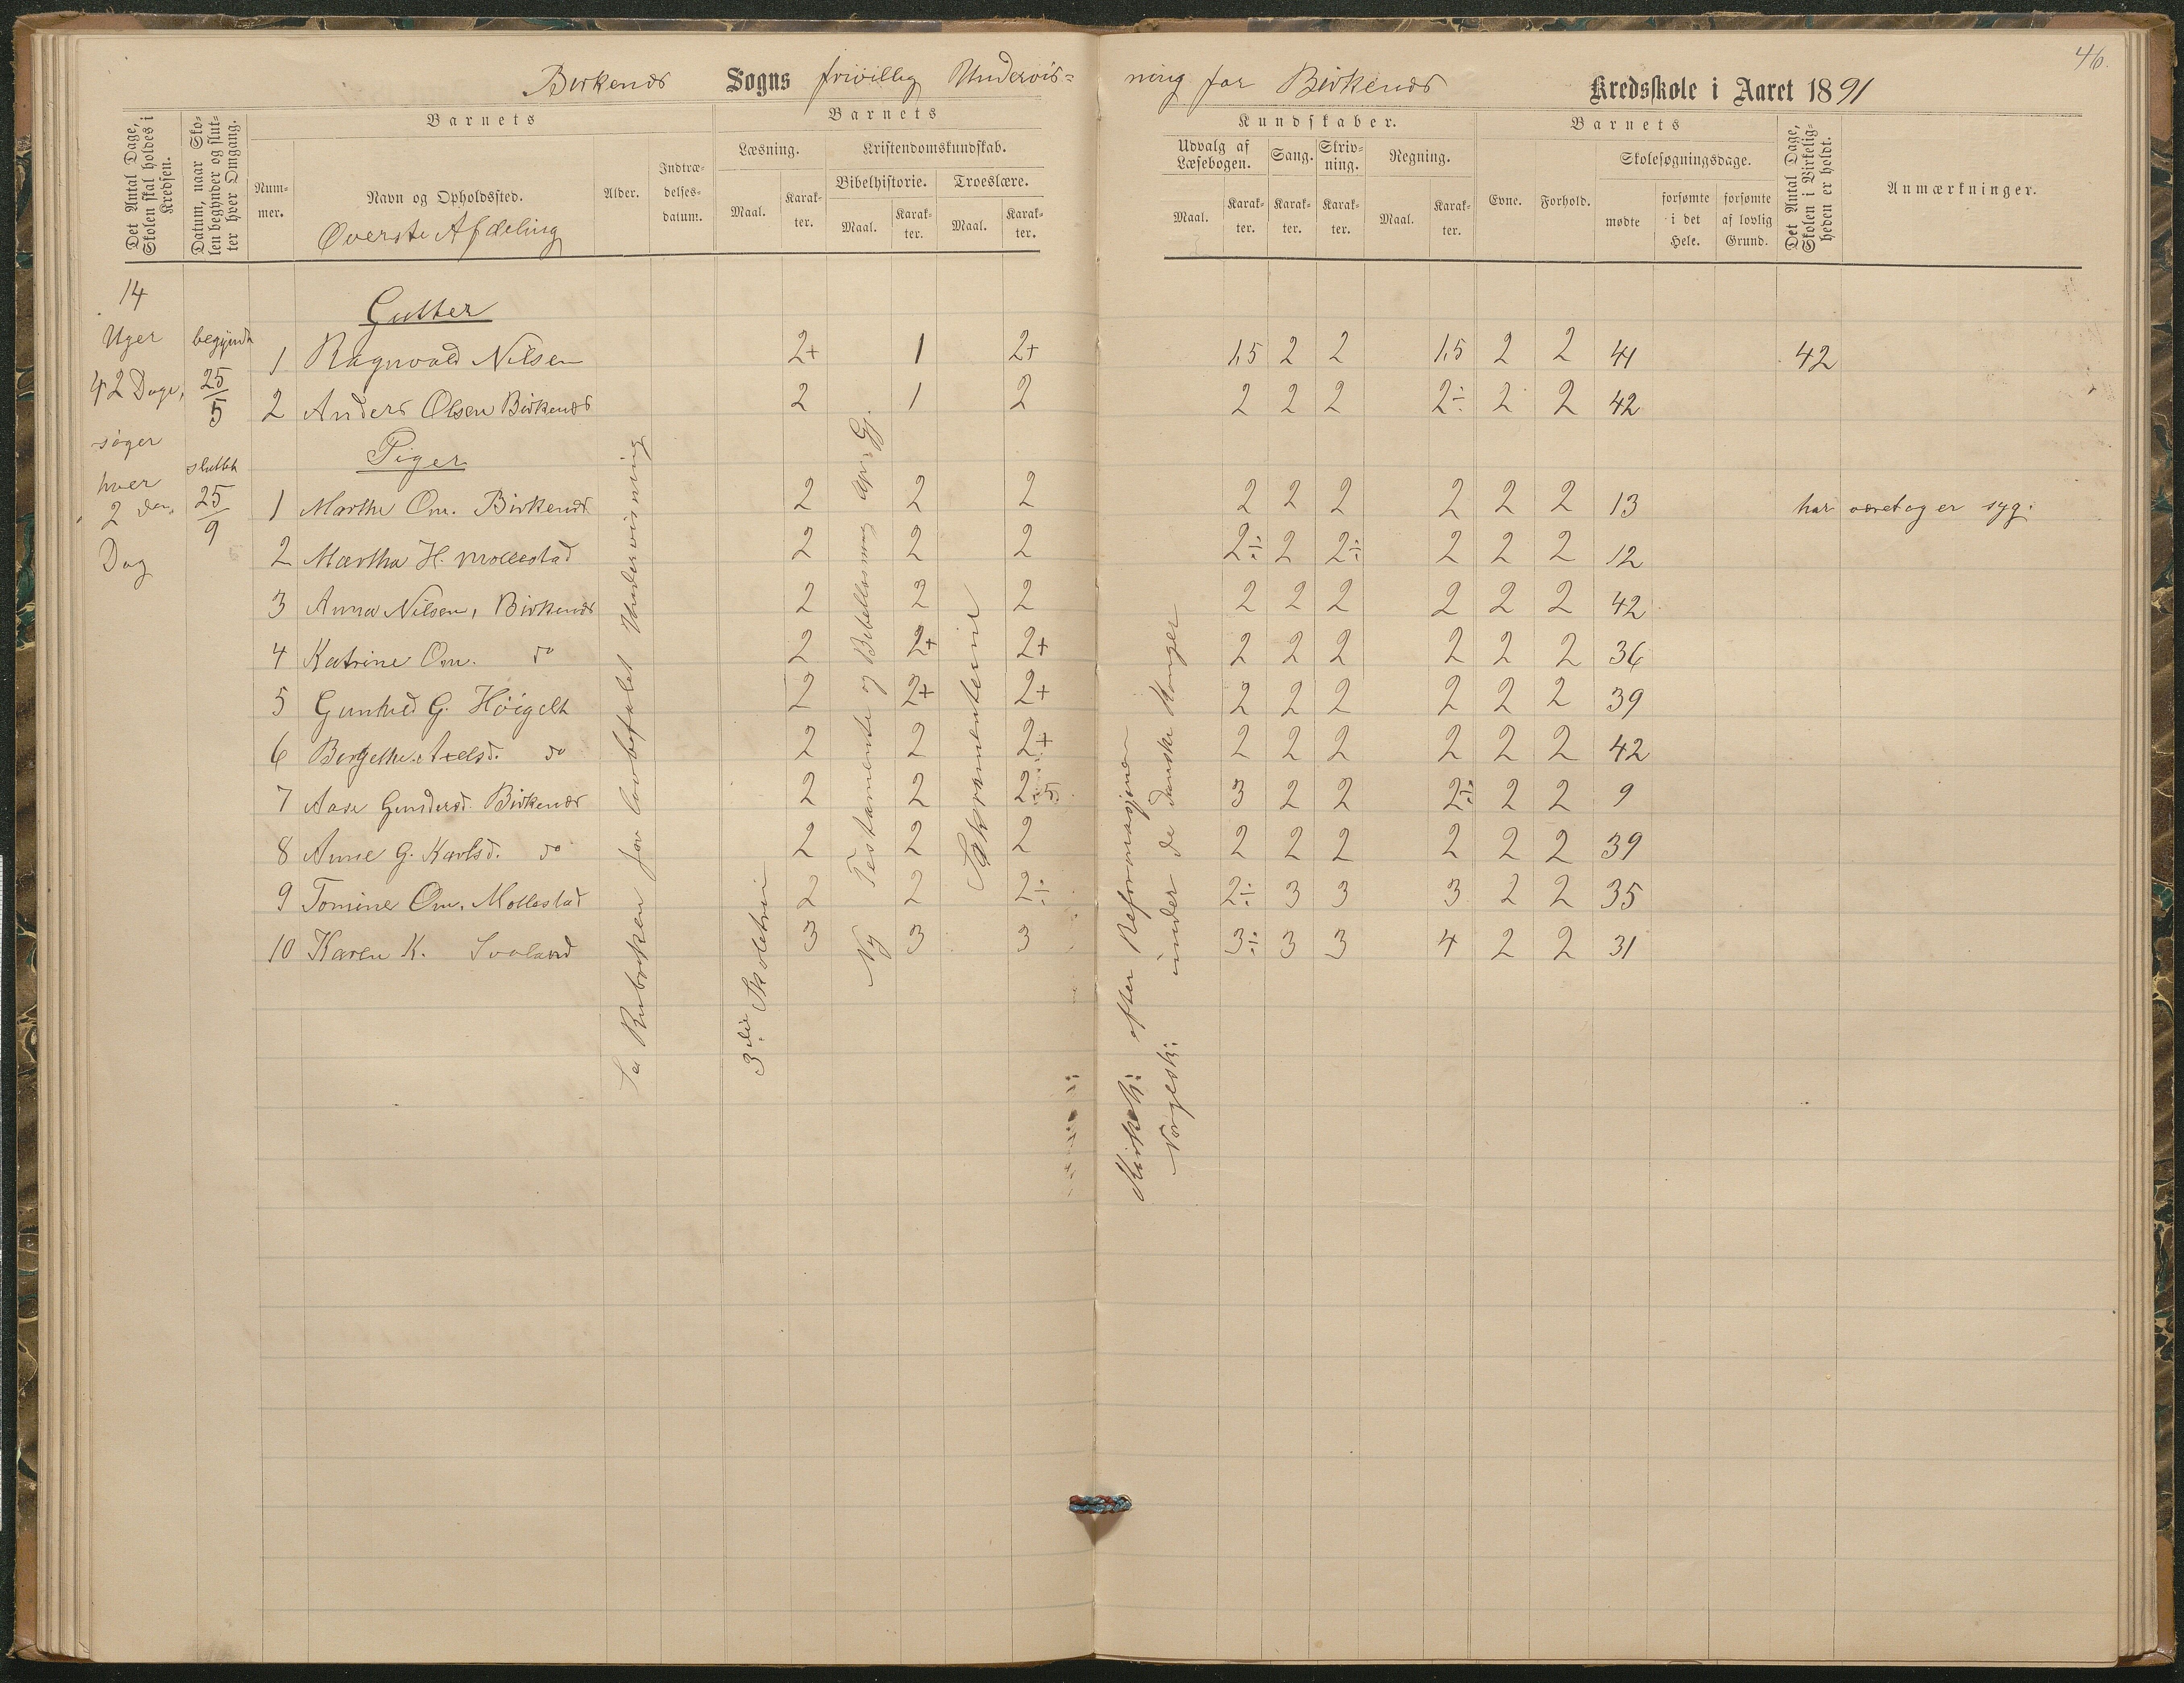 46.
Birkenæs Sogns frivillig Undervis=
ning for Birkenæs Kredsskole i Aaret 1891
Det Antal Dage, Skolen skal holdes i Kredsen.
Datum, naar Skolen begynder og slutter hver Omgang.
Barnets
Nummer.
Navn og Opholdssted.
Øverste Afdeling
Alder.
Indtrædelsesdatum.
Barnets
Læsning.
Maal.
Karakter.
Kristendomskundskab.
Bibelhistorie.
Maal.
Karakter.
Troeslære.
Maal.
Karakter.
Kundskaber.
Udvalg af Læsebogen.
Maal.
Karakter.
Sang.
Karakter.
Skrivning.
Karakter.
Regning.
Maal.
Karakter.
Barnets
Evne.
Forhold.
Skolesøgningsdage.
mødte
forsømte i det Hele.
forsømte af lovlig Grund.
Det Antal Dage, Skolen i Virkeligheden er holdt.
Anmærkninger.
14
Uger
42 Dage,
søger
hver
2 den
Dag
begyndt
25/5
sluttet
25/9
Gutter
1 Ragnvald Nilsen 2+ 1 2+ 1,5 2 2 1,5 2 2 41 42
2 Anders Olsen Birkenæs 2 1 2 2 2 2 2÷ 2 2 42
Piger
1 Marthe Om. Birkenæs 2 2 2 2 2 2 2 2 2 13 har været og er syg.
2 Martha H. Mollestad 2 2 2 2÷ 2 2÷ 2 2 2 12
3 Anna Nilsen, Birkenæs 2 2 2 2 2 2 2 2 2 42
4 Katrine Om. do 2 2+ 2+ 2 2 2 2 2 2 36
5 Gunhild G. Høigelt 2 2+ 2+ 2 2 2 2 2 2 39
6 Bergethe Axelsd. do 2 2 2+ 2 2 2 2 2 2 42
7 Aase Gundersd. Birkenæs 2 2 2,5 3 2 2 2÷ 2 2 9
8 Anne G. Karlsd. do 2 2 2 2 2 2 2 2 2 39
9 Tomine Om. Mollestad 2 2 2÷ 2÷ 3 3 3 2 2 35
10 Karen K. Svaland 3 3 3 3÷ 3 3 4 2 2 31
Se Rubrikken for lovbefalet Undervisning
3die Skoletrin
Ny Testamente og Bibellæsning Ap: Gj.
Sakramenterne
Kirkeh: efter Reformasjonen
Norgesh: under de danske Konger